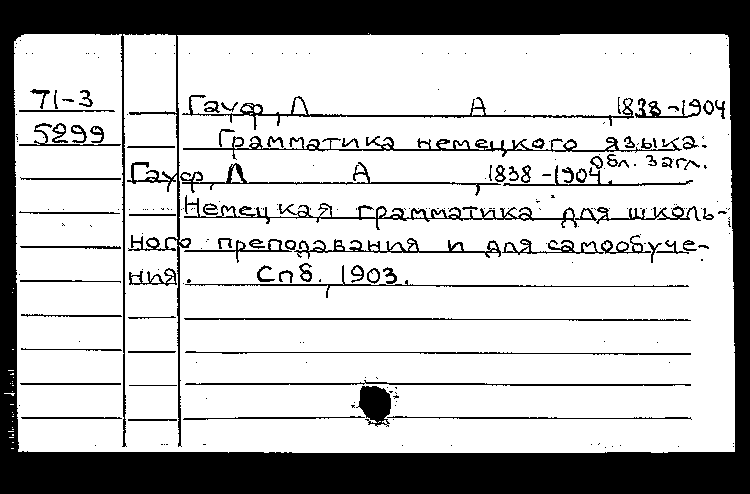 71-3 Гауф, Л А , 1838-1904
5299 Грамматика немецкого языка.
Обл. загл.
Гауф, Л А , 1838-1904.
Немецкая грамматика для школь-
ного преподавания и для самообуче-
ния. Спб., 1903.